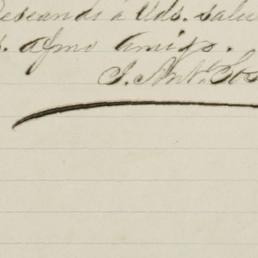 Deseando á Uds. salu
s. afmo amigo.
J. Ant. Sos